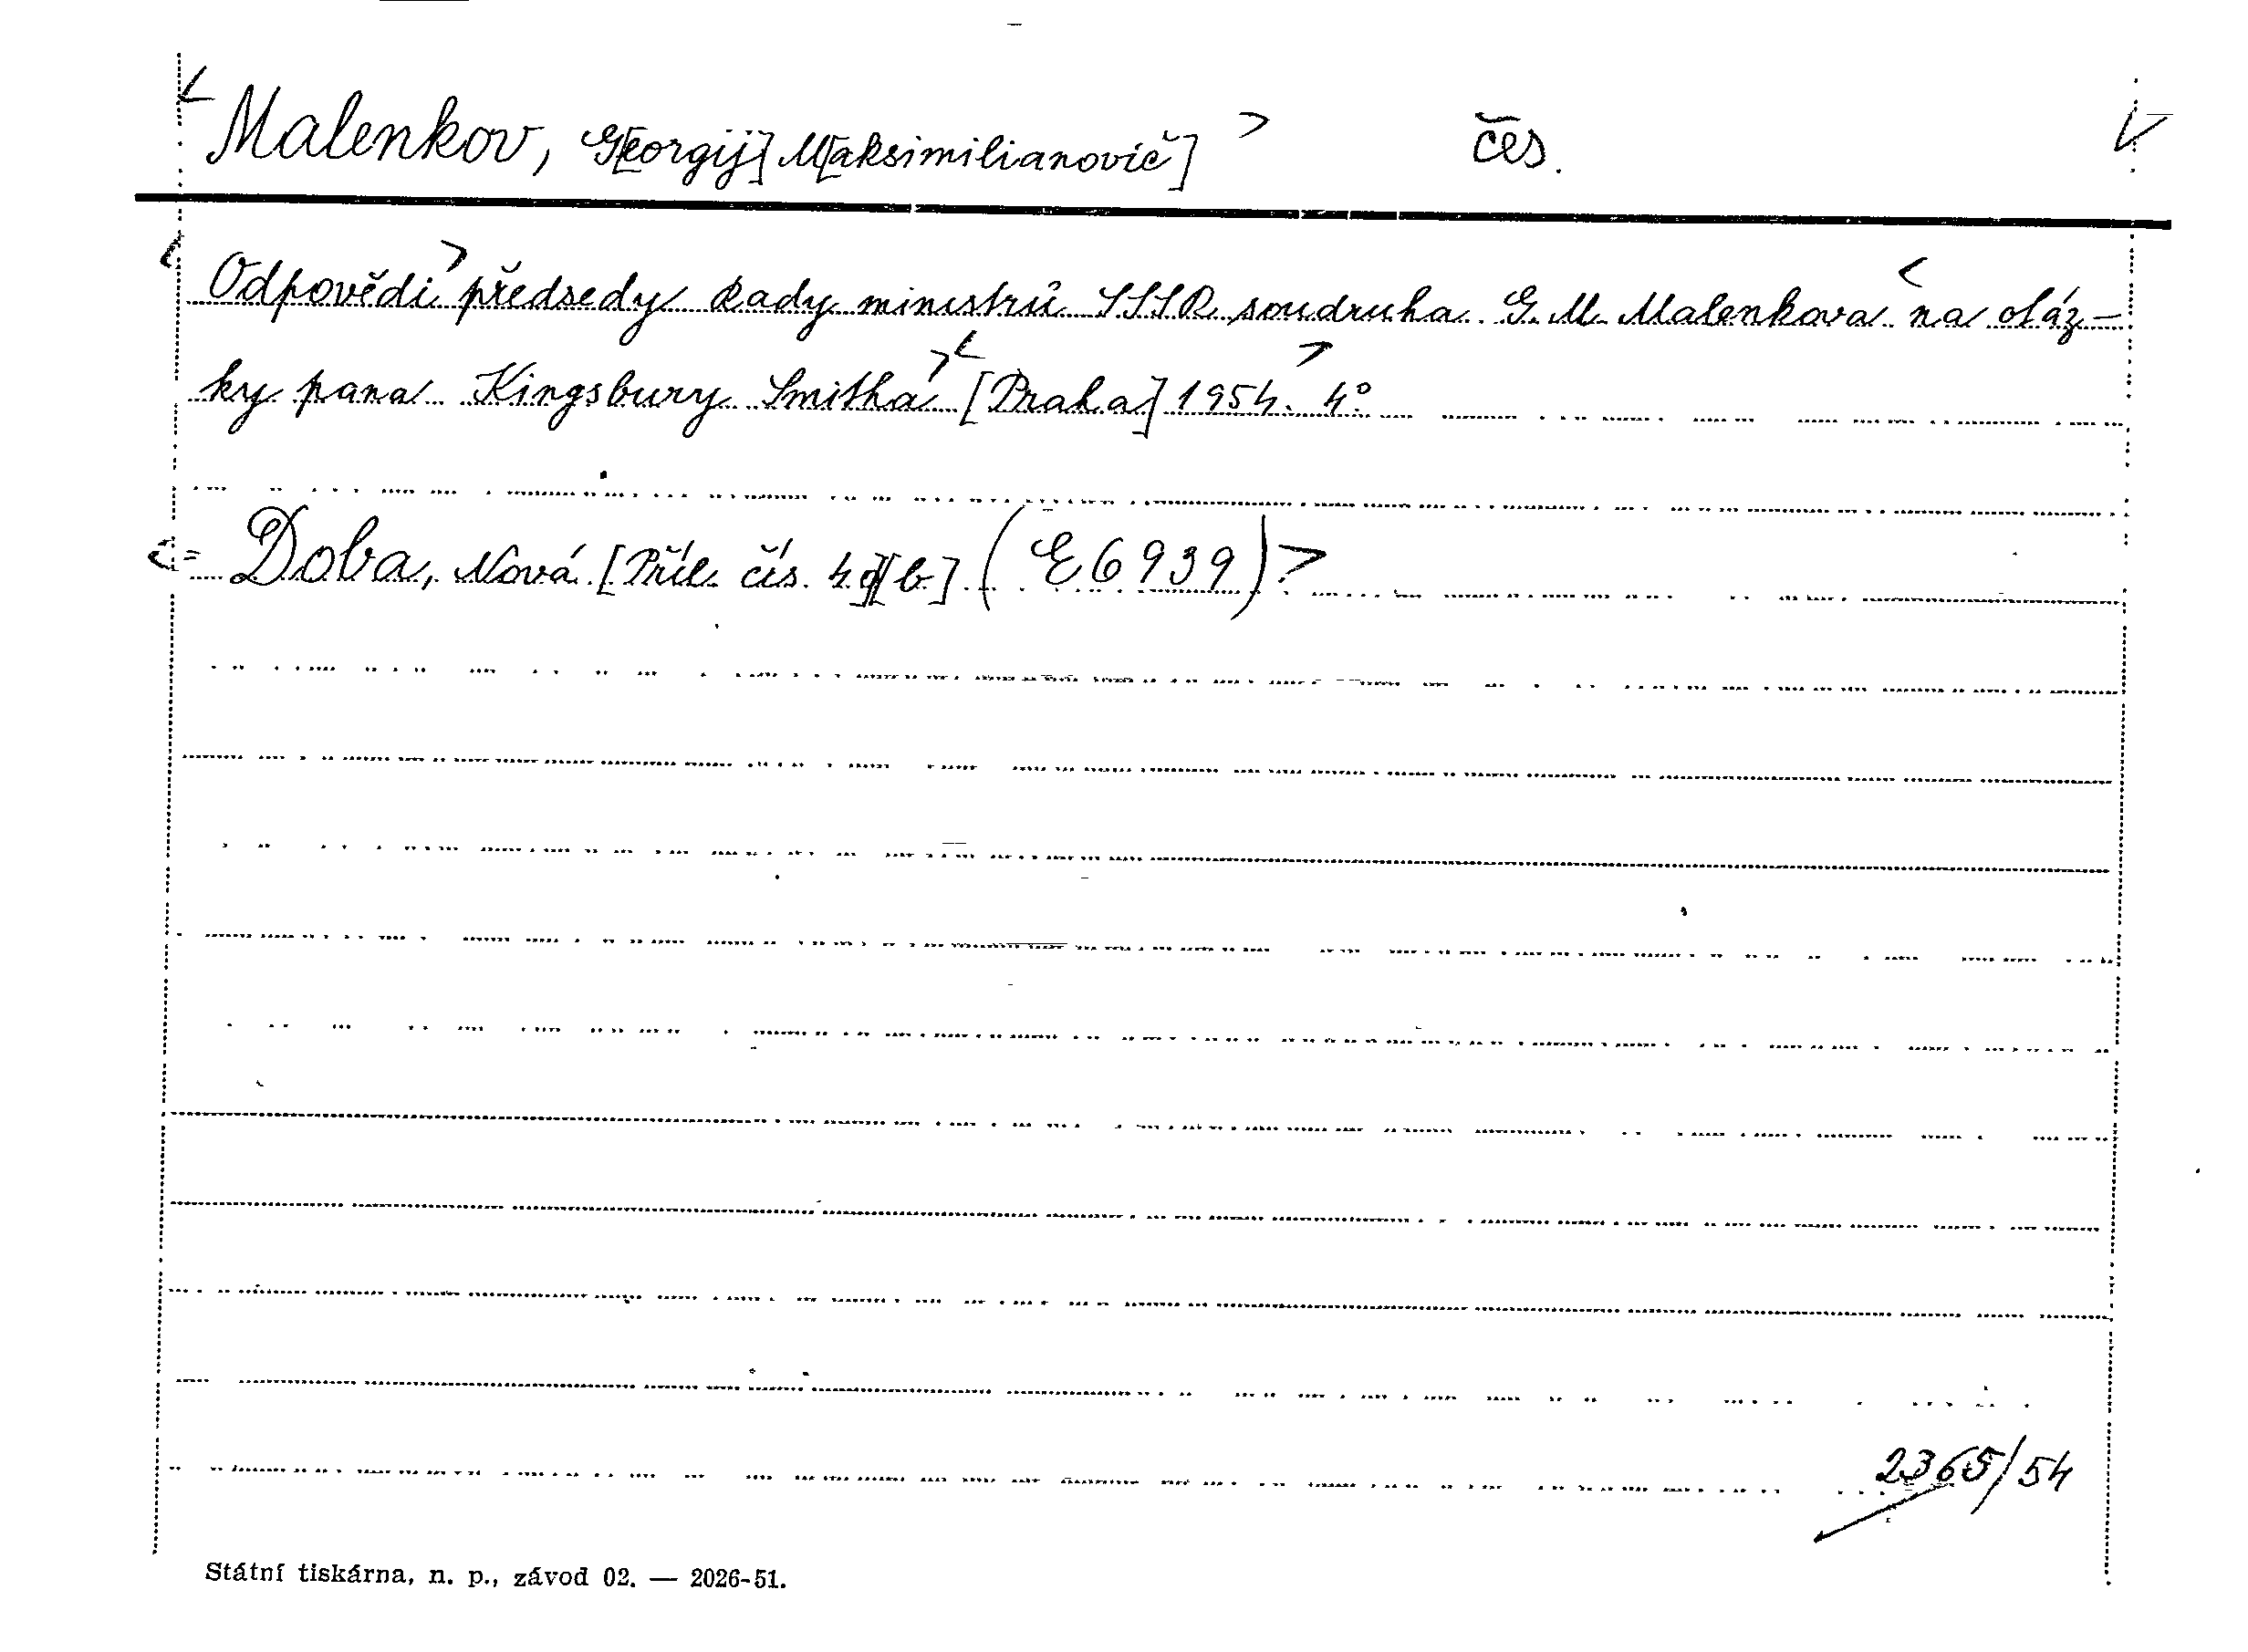 < Malenkov, G[eorgij] M[aksimilianovič] > čes.
< Odpovědi > předsedy Rady ministrů SSSR soudruha G. M. Malenkova < na otáz-
ky pana Kingsbury Smitha > < [Praha] 1954. > 4°
<= Doba, Nová. [Příl. čís. 4.][b.] (E 6939) >
2365/54
Státní tiskárna, n. p., závod 02. — 2026-51.